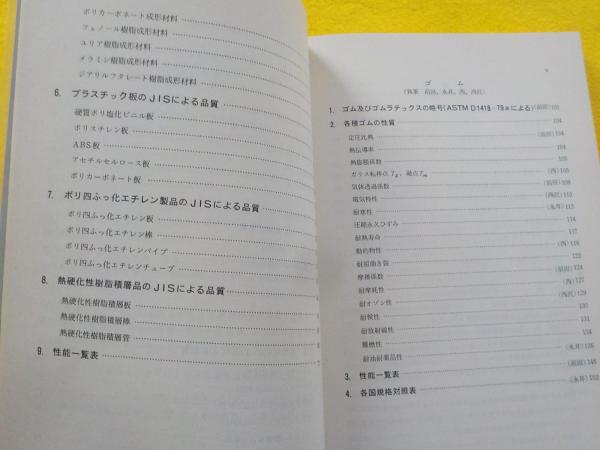 ポリカーボネート成形材料
フェノール樹脂成形材料
ユリア樹脂成形材料
メラミン樹脂成形材料
ジアリルフタレート樹脂成形材料
6. プラスチック板のJISによる品質
硬質ポリ塩化ビニル板
ポリスチレン板
ABS板
アセチルセルロース板
ポリカーボネート板
7. ポリ四ふっ化エチレン製品のJISによる品質
ポリ四ふっ化エチレン板
ポリ四ふっ化エチレン棒
ポリ四ふっ化エチレンパイプ
ポリ四ふっ化エチレンチューブ
8. 熱硬化性樹脂積層品のJISによる品質
熱硬化性樹脂積層板
熱硬化性樹脂積層棒
熱硬化性樹脂積層管
9. 性能一覧表
ゴム
(執筆 前田、永井、西、西沢)
1. ゴム及びゴムラテックスの略号(ASTM D1418-79aによる)(前田)103
2. 各種ゴムの性質 104
定圧比熱 (前田)104
熱伝導率 104
熱膨脹係数 105
ガラス転移点 Tg, 融点 Tm (西)106
気体透過係数 (前田)109
電気特性 (西沢)110
耐寒性 (永井)113
圧縮永久ひずみ 114
耐熱寿命 117
動的物性 (西)118
耐屈曲き裂 122
摩擦係数 (前田)124
耐摩耗性 (西)127
耐オゾン性 (西沢)129
耐候性 130
耐放射線性 131
難燃性 135
耐油耐薬品性 (永井)136
3. 性能一覧表 (前田)146
4. 各国規格対照表 (永井)152